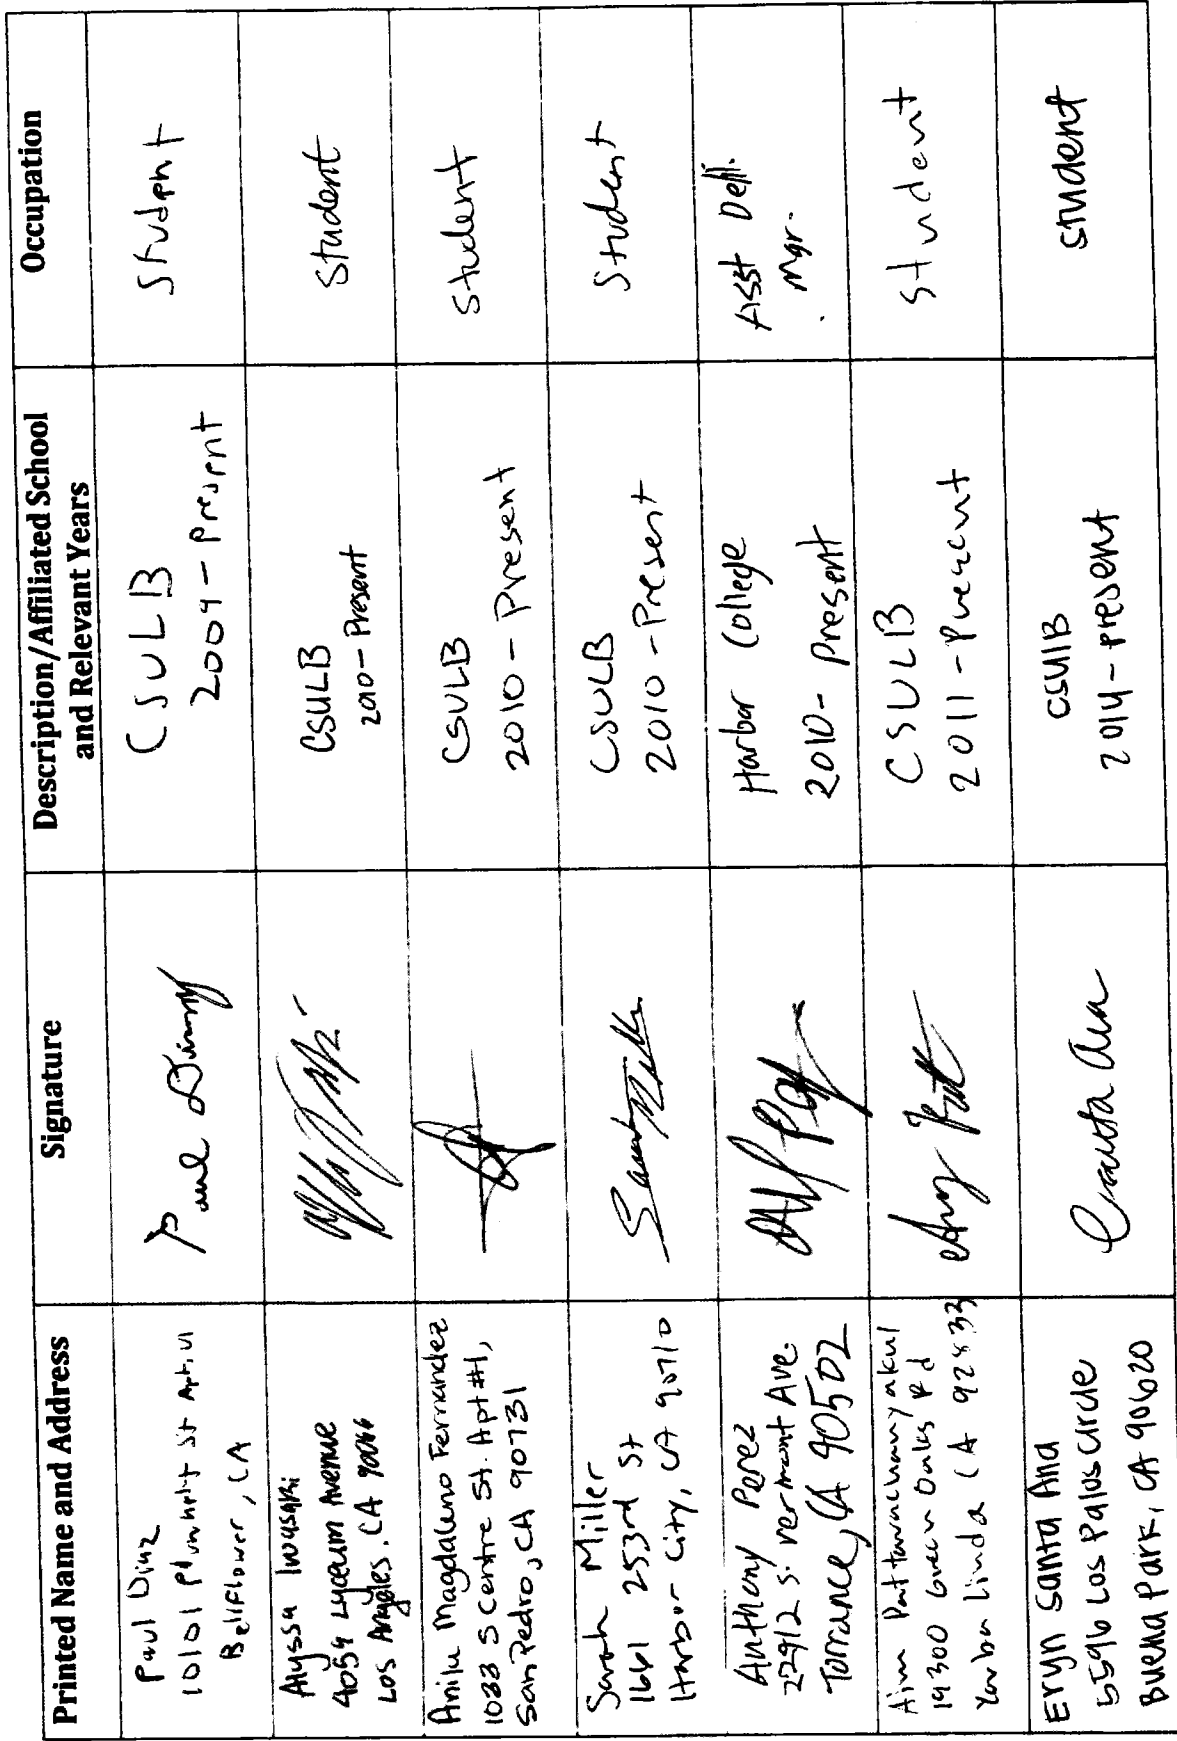 Printed Name and Address
Signature
Description/Affiliated School
and Relevant Years
Occupation
Paul Diaz
10101
St Apt.
Bellflower, CA
CSULB
2009 - Present
Student
Alyssa Iwasaki
4054 Lyceum Avenue
Los Angeles, CA 90066
CSULB
2010 - Present
Student
Anilu Magdaleno Fernandez
1033 S Centre St. Apt #1,
San Pedro, CA 90731
CSULB
2010 - Present
Student
Sarah Miller
1661 253rd St
Harbor City, CA 90710
CSULB
2010 - Present
Student
Anthony Perez
22912 S. Vermont Ave.
Torrance, CA 90502
Harbor College
2010 - Present
Asst Deli.
Mgr.
Aim
19300 Green Oaks Rd
Yorba Linda CA
CSULB
2011 - Present
Student
Eryn Santa Ana
5596 Los Palos Circle
Buena Park, CA 90620
Santa Ana
CSULB
2014 - present
student